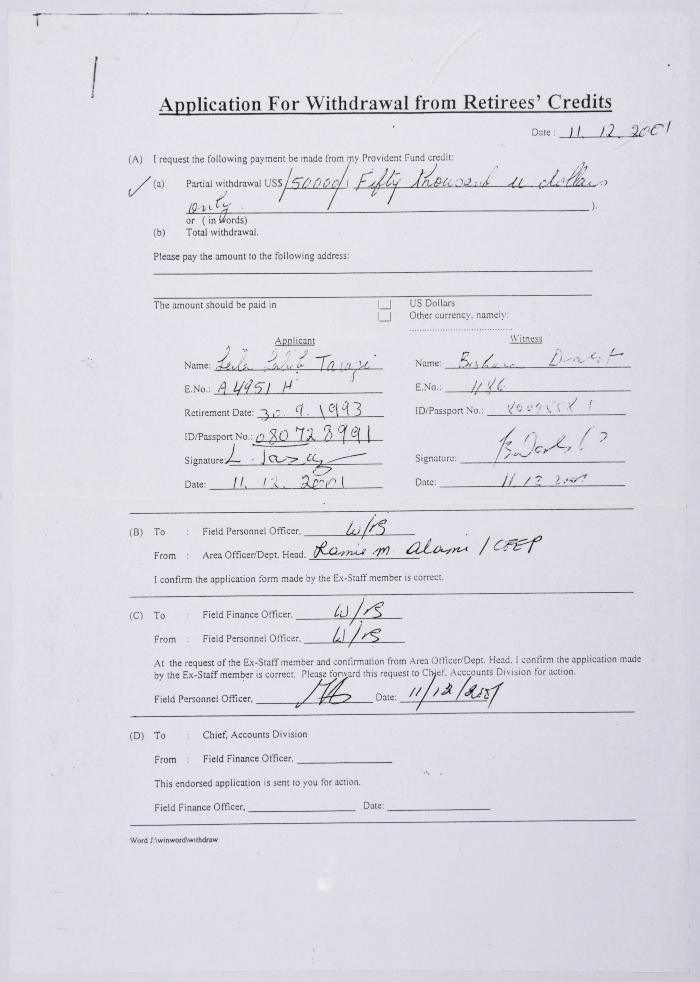 Application For Withdrawal from Retirees' Credits
Date: 11. 12. 2001
(A) I request the following payment be made from my Provident Fund credit:
(a) Partial withdrawal US$ /50000/ Fifty thousand u dollars
only ).
or (in Words)
(b) Total withdrawal.
Please pay the amount to the following address:
The amount should be paid in US Dollars
Other currency, namely:
Applicant Witness
Name: Leila Tarazi Name:
E.No.: A4951 H E.No.: 1186
Retirement Date: 30. 9. 1993 ID/Passport No.:
ID/Passport No.: 080728991
Signature: L. Tarazi Signature:
Date: 11. 12. 2001 Date: 11 12 2001
(B) To : Field Personnel Officer, W/B
From : Area Officer/Dept. Head. Ramie M. Alami / CFEP
I confirm the application form made by the Ex-Staff member is correct.
(C) To : Field Finance Officer, W/B
From : Field Personnel Officer, W/B
At the request of the Ex-Staff member and confirmation from Area Officer/Dept. Head. I confirm the application made
by the Ex-Staff member is correct. Please forward this request to Chief, Acccounts Division for action.
Field Personnel Officer, Date: 11/12/2001
(D) To : Chief, Accounts Division
From : Field Finance Officer,
This endorsed application is sent to you for action.
Field Finance Officer, Date:
Word J:\winword\withdraw